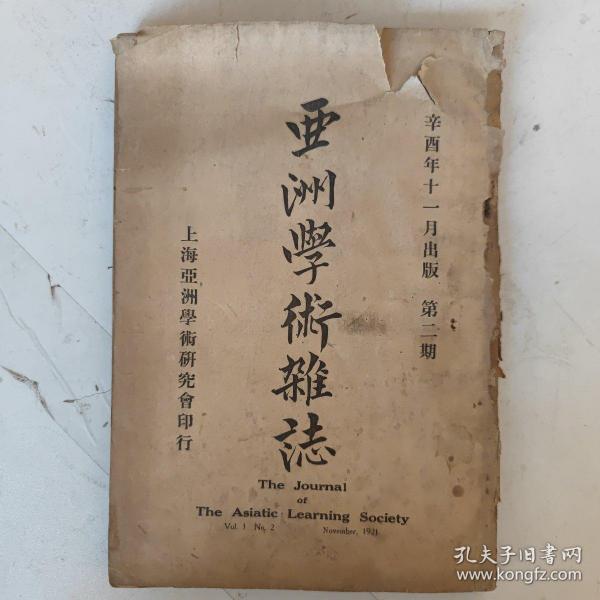 辛酉年十一月出版 第二期
亜洲學術雜誌
上海亞洲學術研究會印行
The Journal
of
The Asiatic Learning Society
Vol. 1 No. 2 November, 1921
孔夫子旧书网
www.kongfz.com